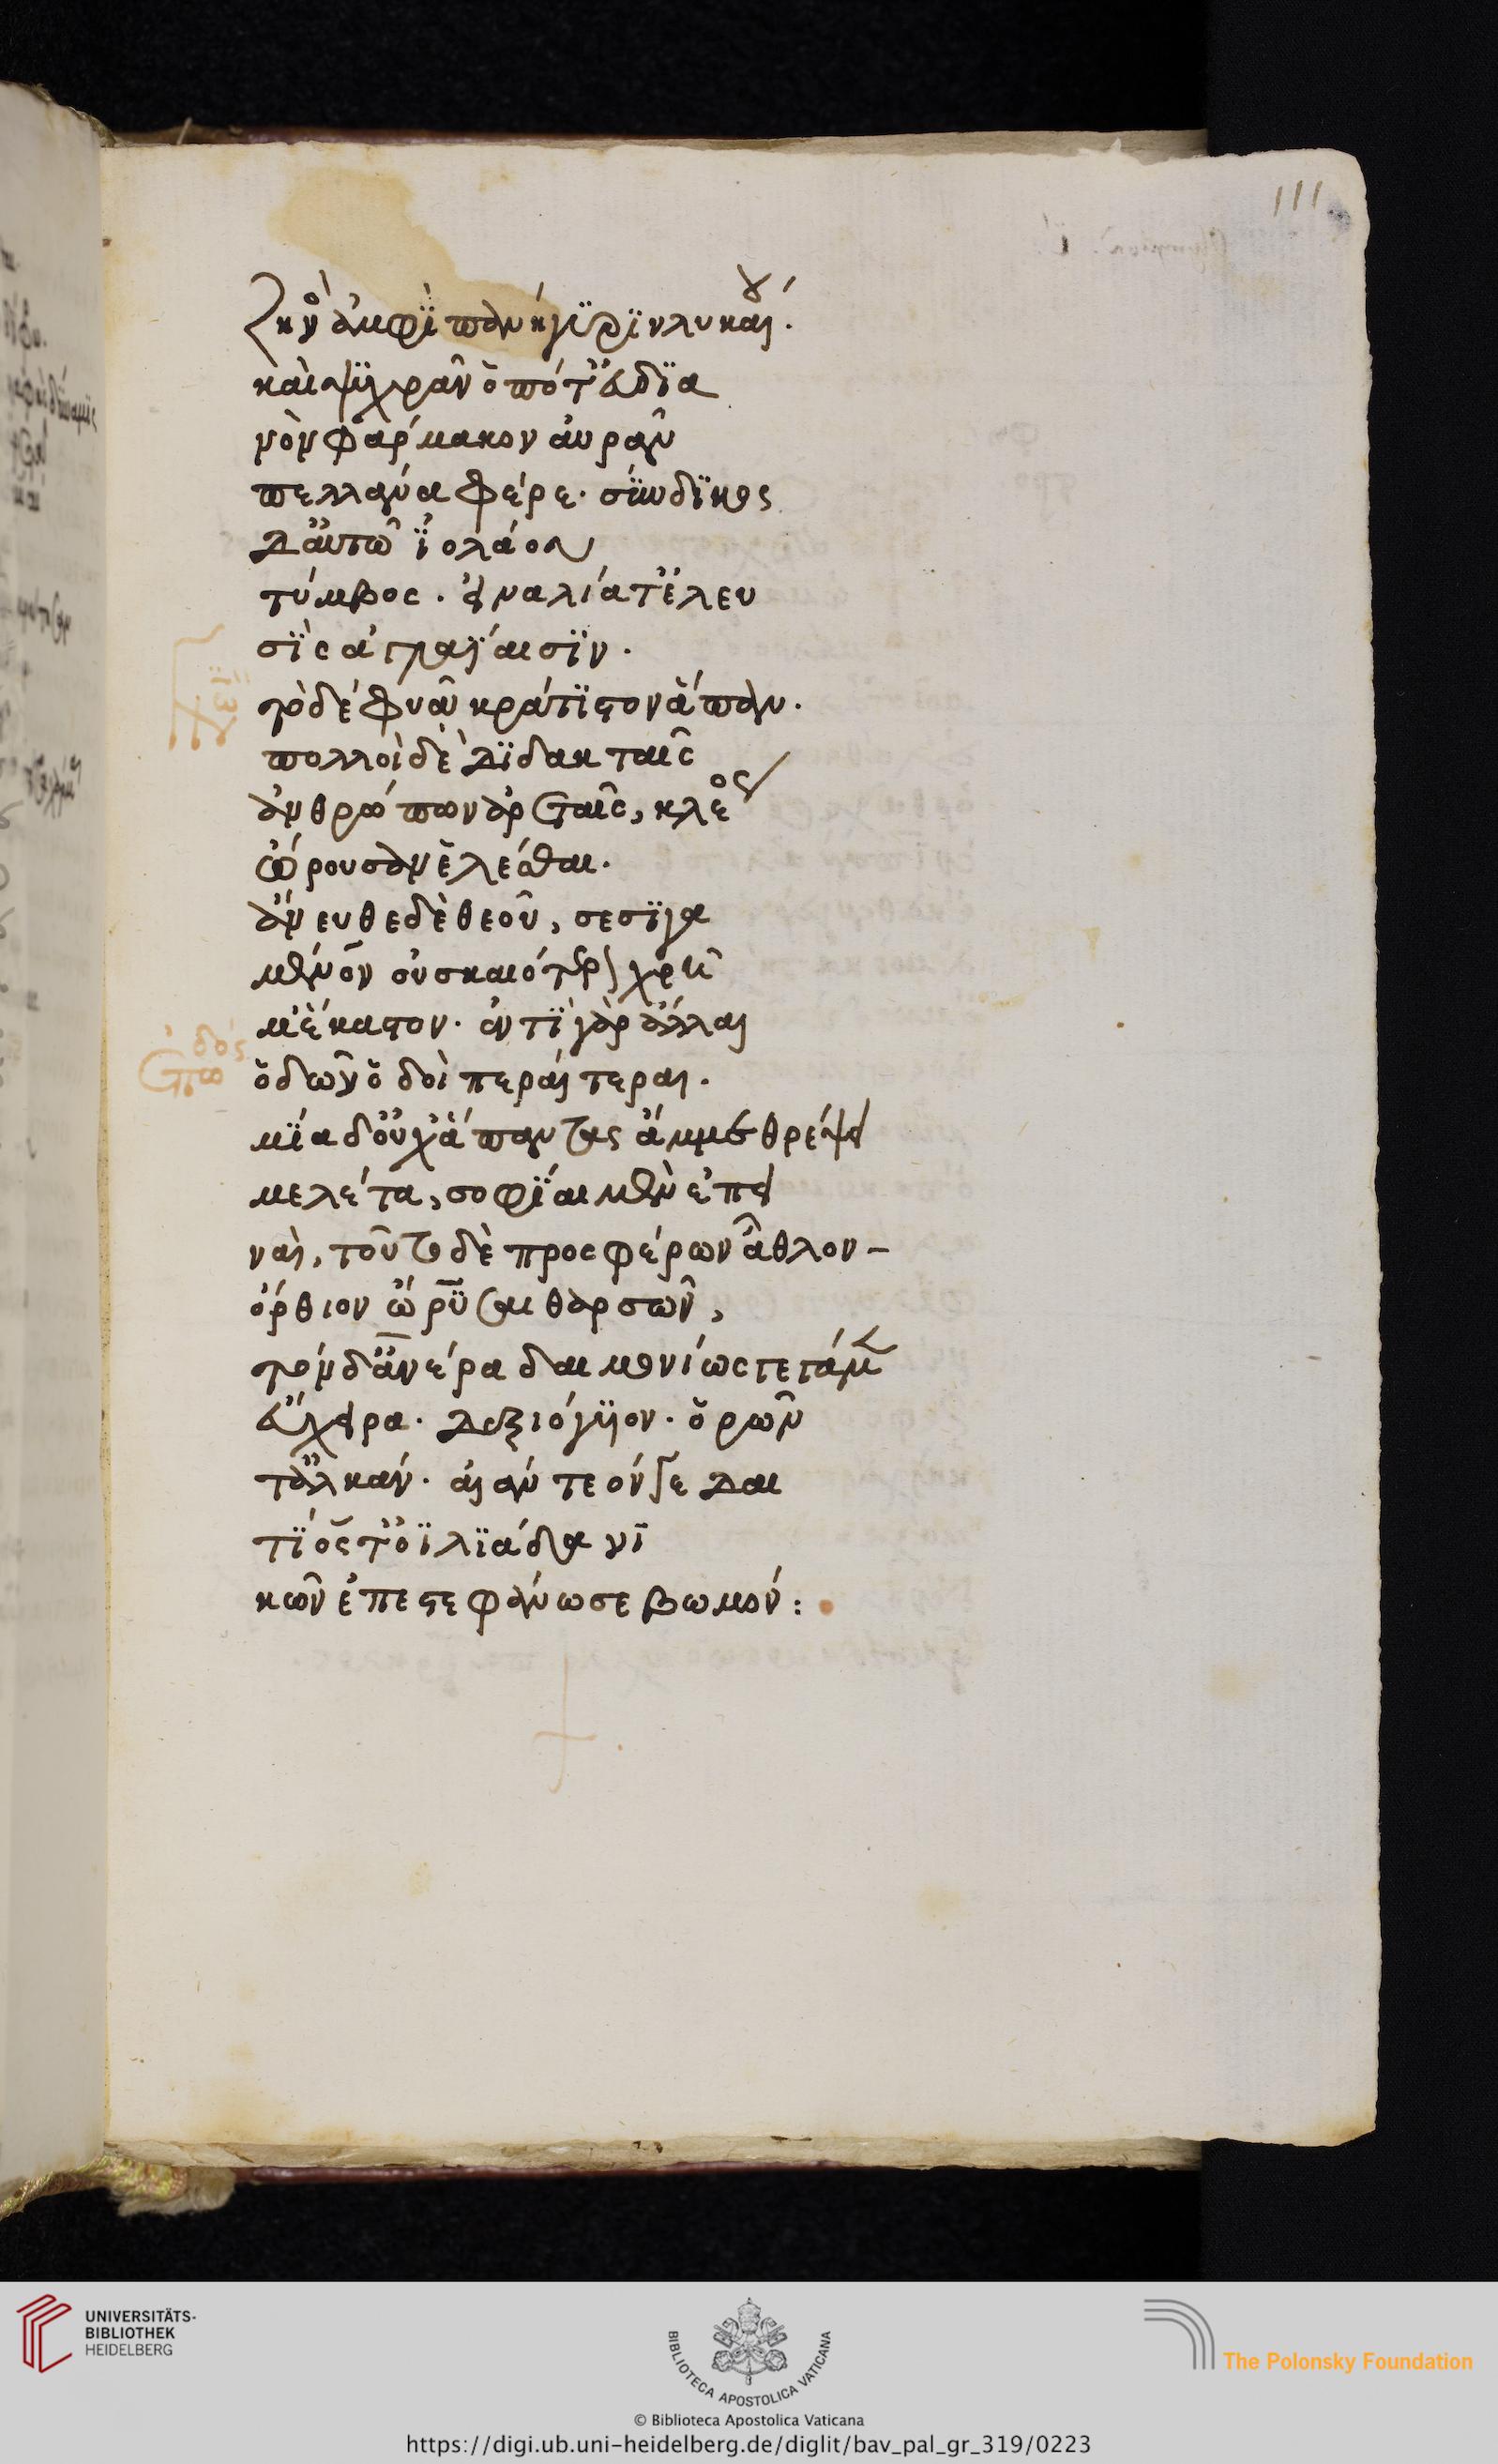 111
Ζηνὸς ἀμφὶ πανήγυριν λυκαίου.
καὶ ψυχρᾶν ὁπότ' εὐδια
νὸν φάρμακον αὐρᾶν
πελλάνα φέρε. σύνδικος
δ' αὐτῶ ἰολάου
τύμβος. εἰναλία τ' ἐλευ
σὶς ἀγλαΐαισιν.
τὸ δὲ φυᾶ κράτιστον ἅπαν.
πολλοὶ δὲ διδακταῖς
ἀνθρώπων ἀρεταῖς, κλέος
ὤρουσαν ἑλέσθαι.
ἄνευθε δὲ θεοῦ, σεσιγα
μένον οὐ σκαιότερον χρῆ
μ' ἕκαστον. ἐντὶ γὰρ ἄλλαι
ὁδῶν ὁδοὶ περαίτεραι.
μία δ' οὐχ ἅπαντας ἄμμε θρέψει
μελέτα, σοφίαι μὲν αἰπει
ναὶ, τοῦτο δὲ προσφέρων ἆθλον
ὄρθιον ὤρυσαι θαρσῶν,
τόνδ' ἀνέρα δαιμονίως γεγάμεν
εὔχειρα. δεξιόγυιον. ὁρῶν
τ' ἀλκάν. αἰάντεόν τε δαι
τὶ ὅς τ' ὀϊλιάδα νι
κῶν ἐπεστεφάνωσε βωμόν:
ἐπῳδός
UNIVERSITÄTS-
BIBLIOTHEK
HEIDELBERG
BIBLIOTECA APOSTOLICA VATICANA
The Polonsky Foundation
© Biblioteca Apostolica Vaticana
https://digi.ub.uni-heidelberg.de/diglit/bav_pal_gr_319/0223